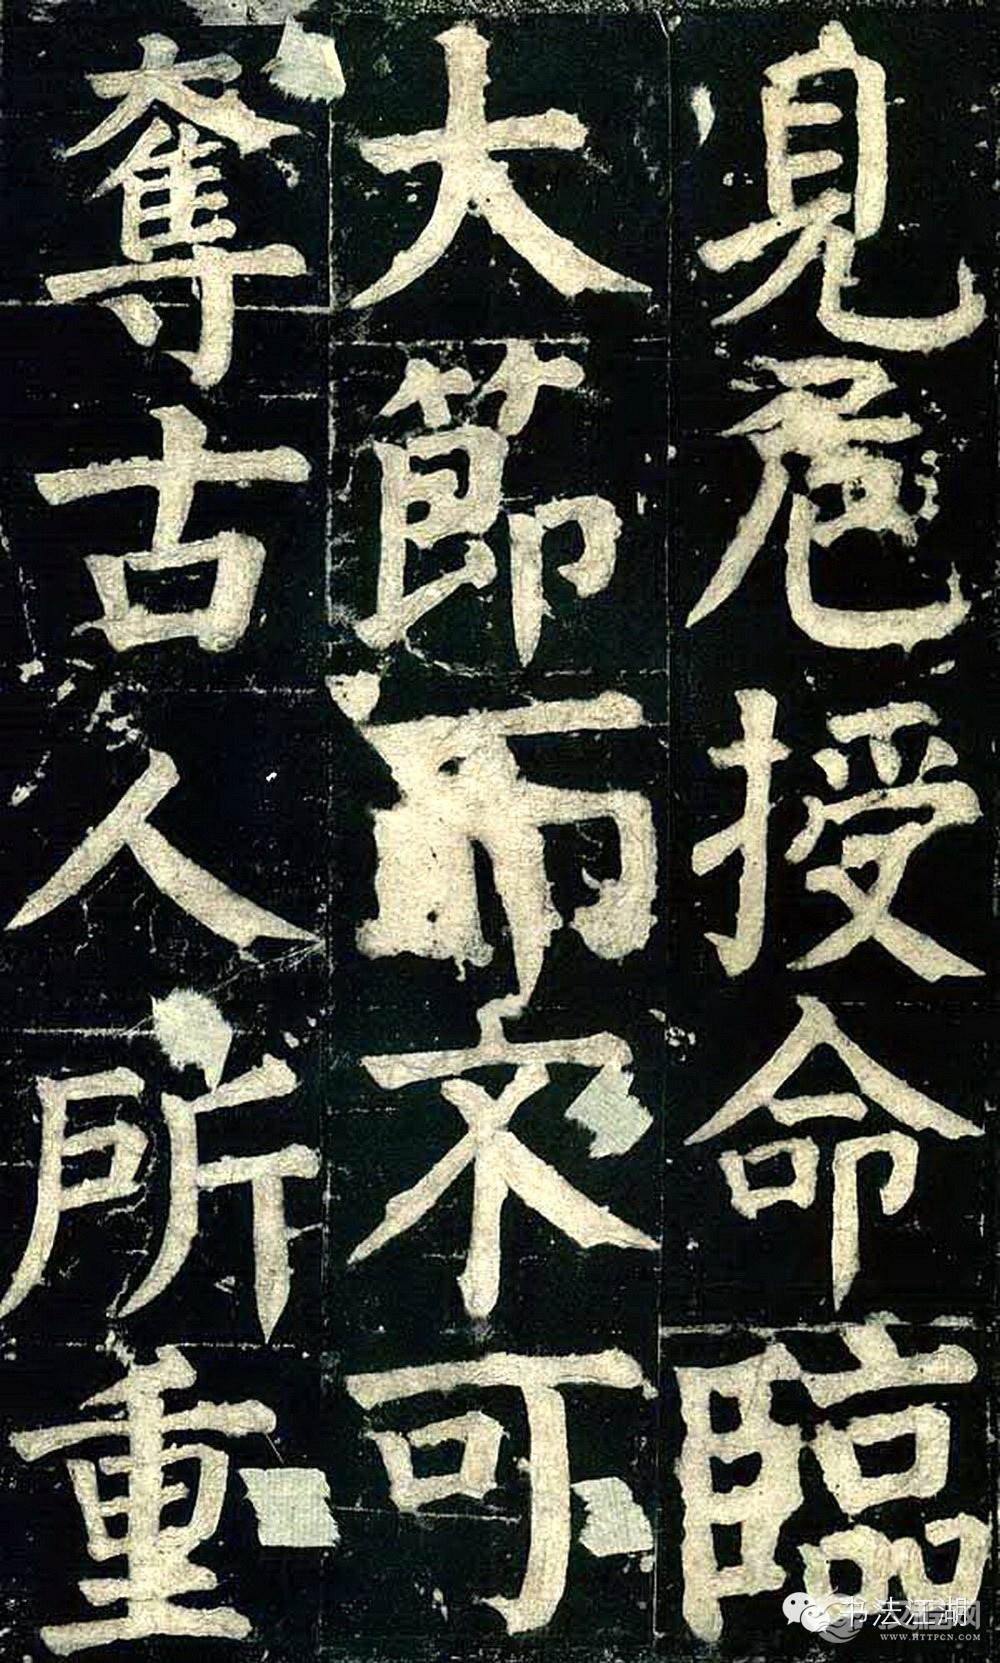 見危授命臨
大節而不可
奪古人所重
书法江湖
WWW.HTTPCN.COM